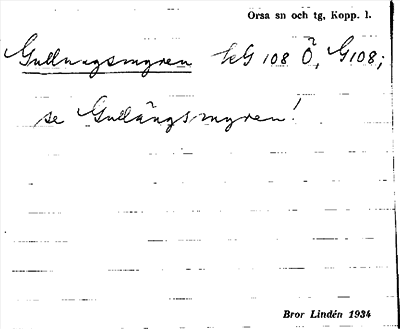 Orsa sn och tg, Kopp. l.
Gullungsmyren kG 108 Ö, G108;
se Gullängsmyren!
Bror Lindén 1934